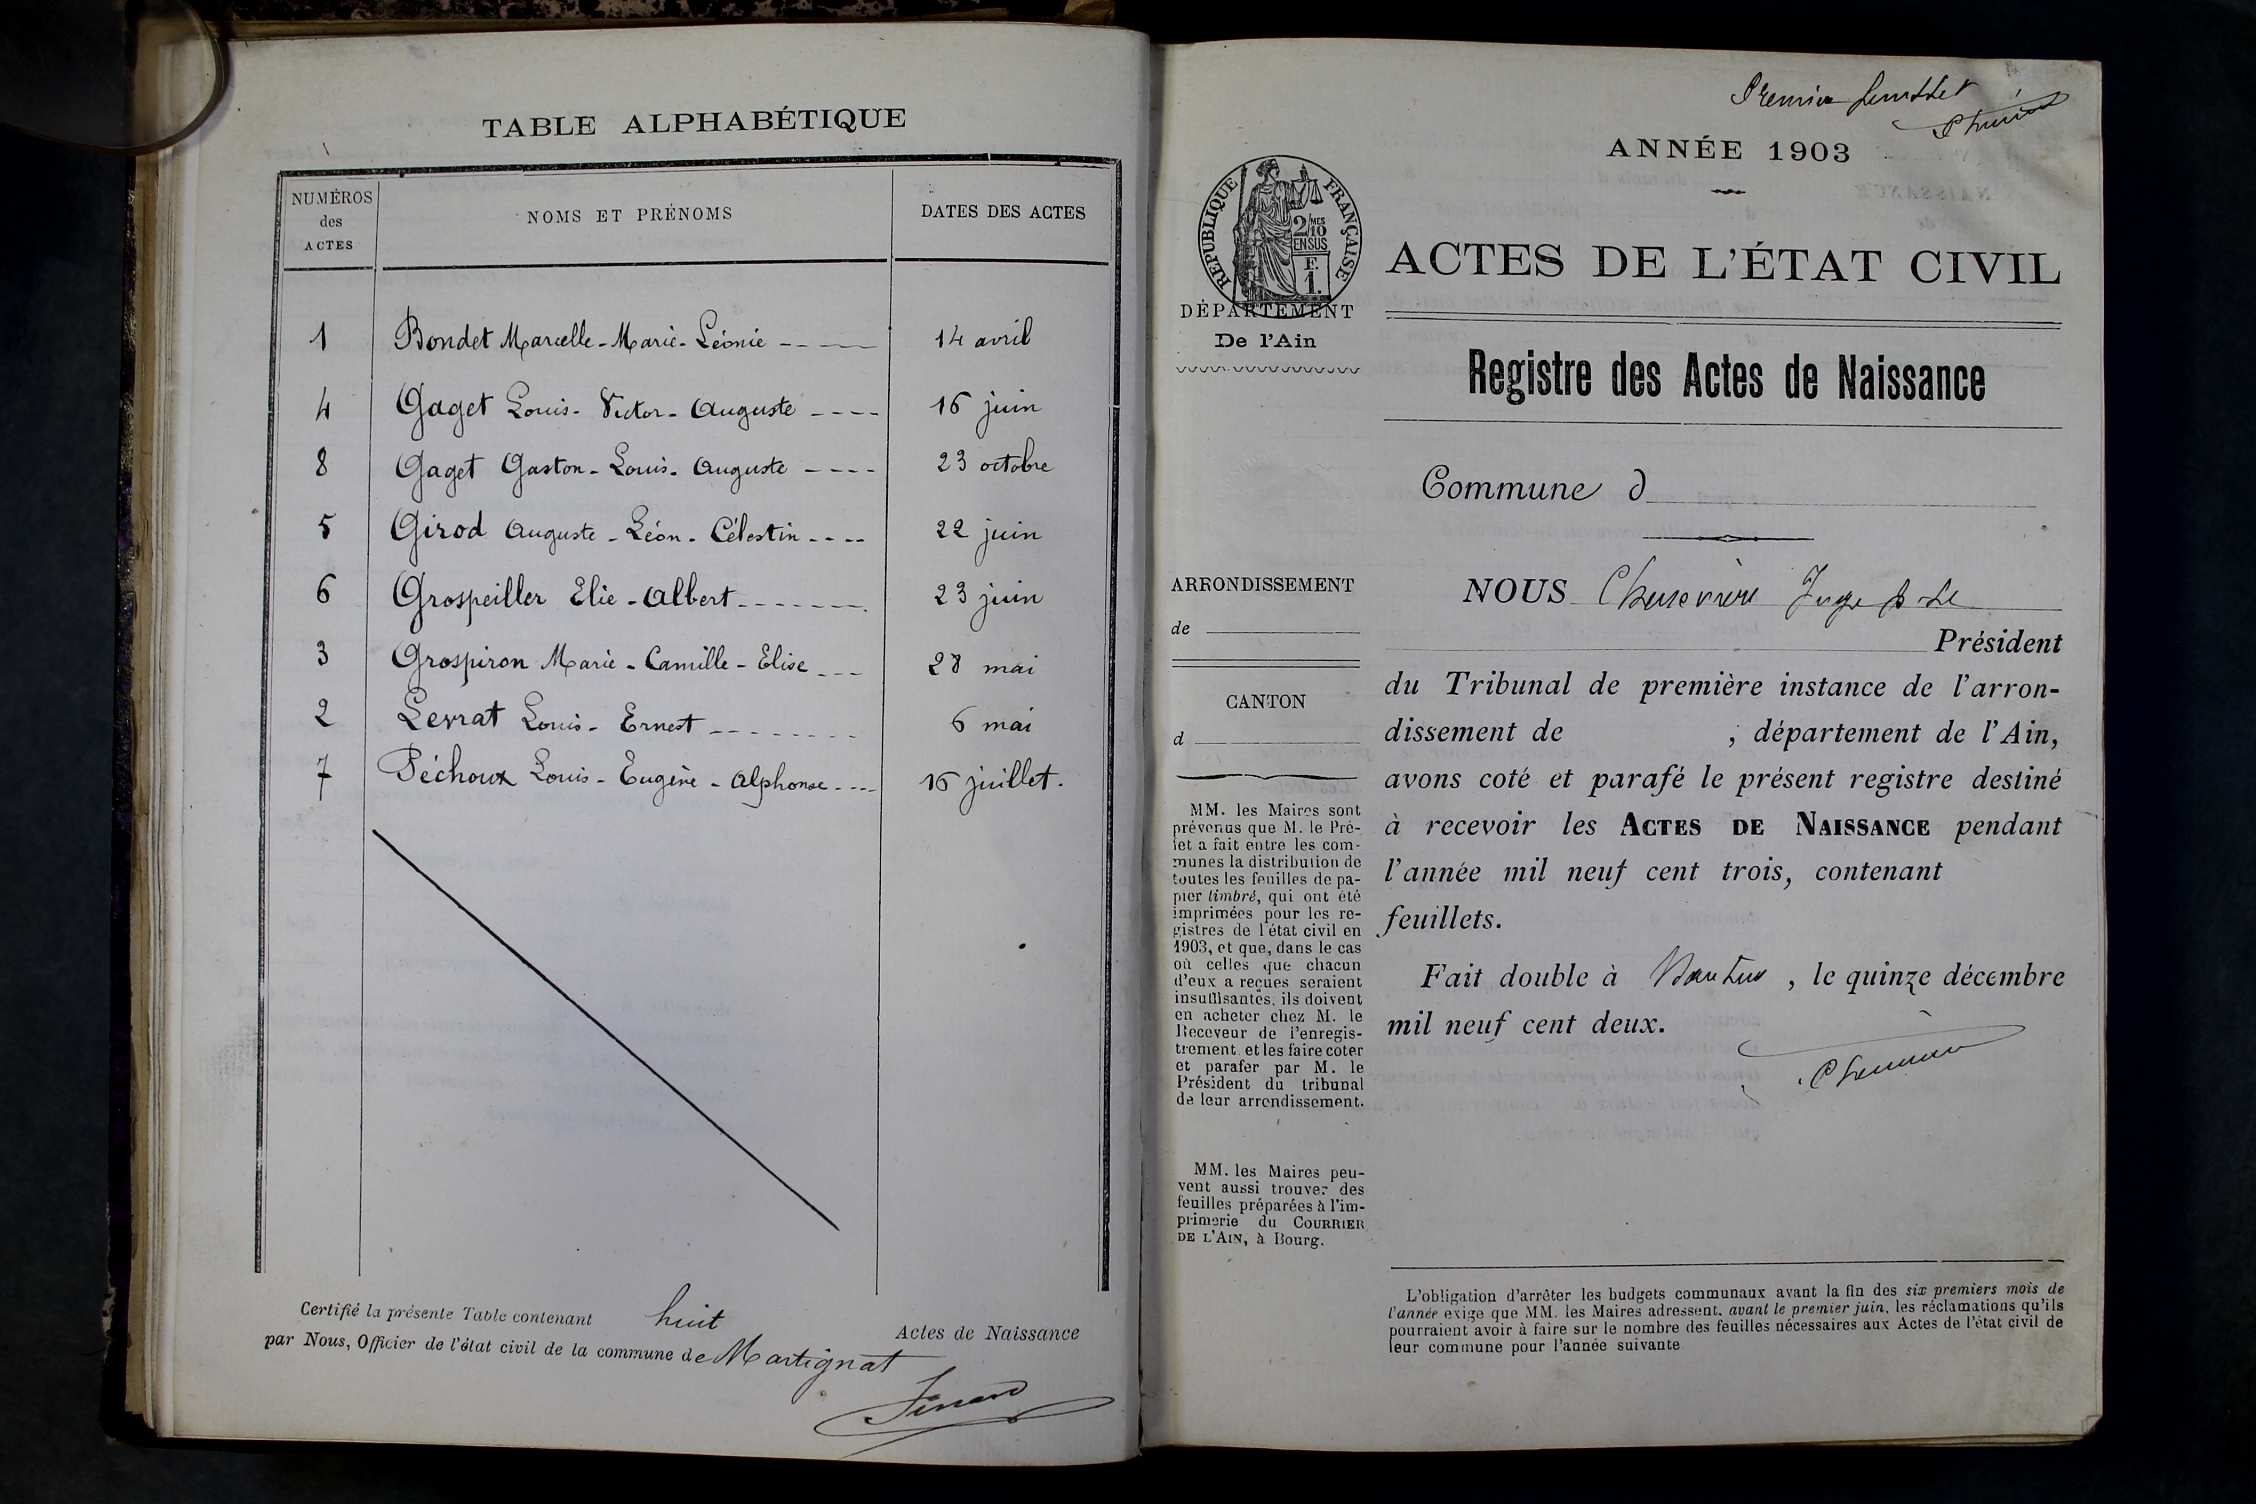 TABLE ALPHABÉTIQUE
NUMÉROS des ACTES
NOMS ET PRÉNOMS
DATES DES ACTES
1 Bondet Marcelle-Marie-Léonie ---- 14 avril
4 Gaget Louis-Victor-Auguste ---- 16 juin
8 Gaget Gaston-Louis-Auguste ---- 23 octobre
5 Girod Auguste-Léon-Célestin ---- 22 juin
6 Grospeiller Elie-Albert ------- 23 juin
3 Grospiron Marie-Camille-Elise --- 28 mai
2 Levrat Louis-Ernest -------- 6 mai
7 Péchoux Louis-Eugène-Alphonse ---- 16 juillet.
Certifié la présente Table contenant huit Actes de Naissance
par Nous, Officier de l'état civil de la commune de Martignat
Premier feuillet
ANNÉE 1903
RÉPUBLIQUE FRANÇAISE
2/10 MES
EN SUS
F.
1.
DÉPARTEMENT
De l'Ain
ARRONDISSEMENT
de
CANTON
d
MM. les Maires sont
prévenus que M. le Pré-
fet a fait entre les com-
munes la distribution de
toutes les feuilles de pa-
pier timbré, qui ont été
imprimées pour les re-
gistres de l'état civil en
1903, et que, dans le cas
où celles que chacun
d'eux a reçues seraient
insuffisantes, ils doivent
en acheter chez M. le
Receveur de l'enregis-
trement et les faire coter
et parafer par M. le
Président du tribunal
de leur arrondissement.
MM. les Maires peu-
vent aussi trouver des
feuilles préparées à l'im-
primerie du COURRIER
DE L'AIN, à Bourg.
ACTES DE L'ÉTAT CIVIL
Registre des Actes de Naissance
Commune d
NOUS Juge
Président
du Tribunal de première instance de l'arron-
dissement de ; département de l'Ain,
avons coté et parafé le présent registre destiné
à recevoir les ACTES DE NAISSANCE pendant
l'année mil neuf cent trois, contenant
feuillets.
Fait double à Nantua, le quinze décembre
mil neuf cent deux.
L'obligation d'arrêter les budgets communaux avant la fin des six premiers mois de
l'année exige que MM. les Maires adressent, avant le premier juin, les réclamations qu'ils
pourraient avoir à faire sur le nombre des feuilles nécessaires aux Actes de l'état civil de
leur commune pour l'année suivante